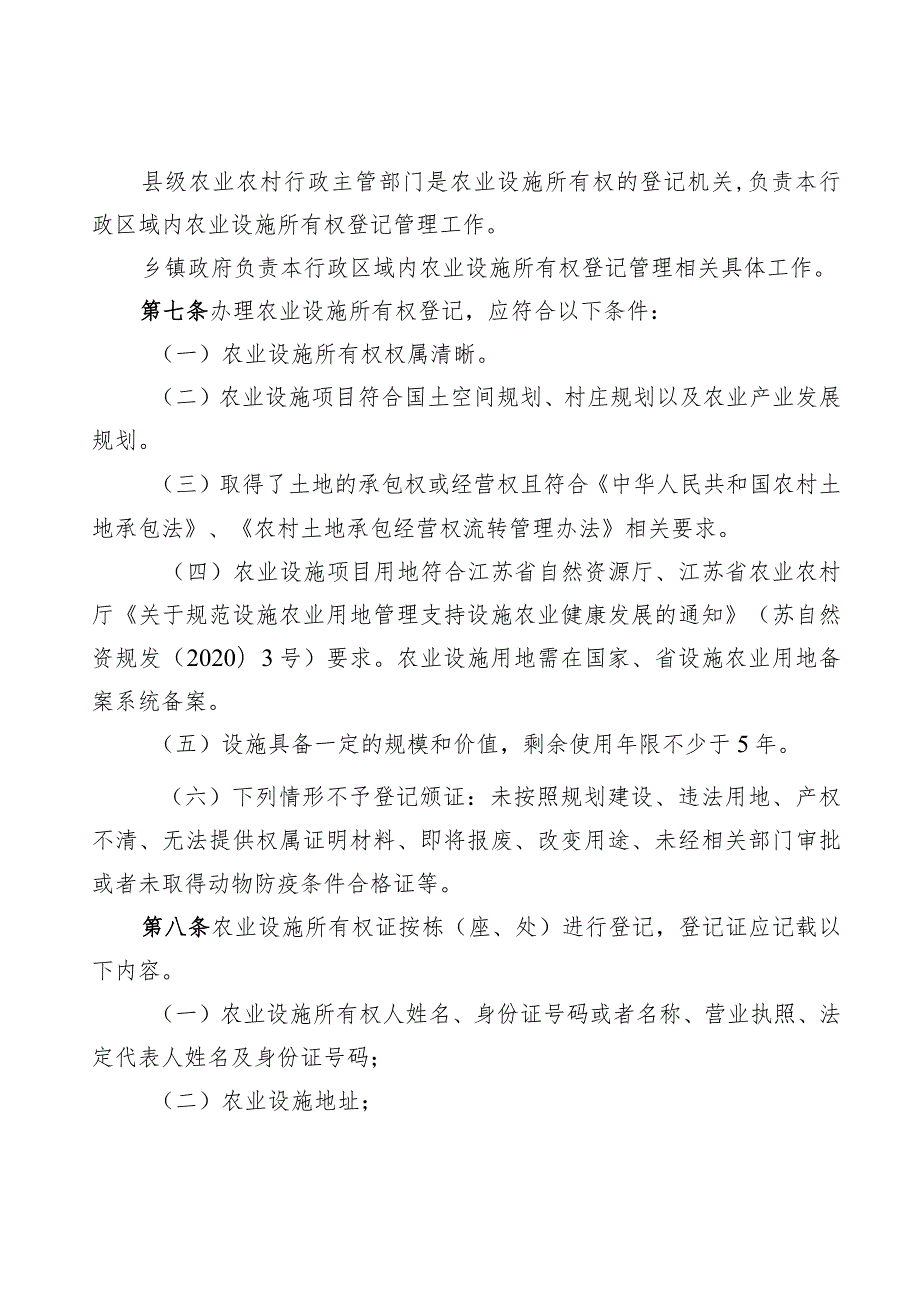 县级农业农村行政主管部门是农业设施所有权的登记机关,负责本行
政区域内农业设施所有权登记管理工作。
乡镇政府负责本行政区域内农业设施所有权登记管理相关具体工作。
第七条办理农业设施所有权登记，应符合以下条件：
（一）农业设施所有权权属清晰。
（二）农业设施项目符合国土空间规划、村庄规划以及农业产业发展
规划。
（三）取得了土地的承包权或经营权且符合《中华人民共和国农村土
地承包法》、《农村土地承包经营权流转管理办法》相关要求。
（四）农业设施项目用地符合江苏省自然资源厅、江苏省农业农村
厅《关于规范设施农业用地管理支持设施农业健康发展的通知》（苏自然
资规发（2020）3 号）要求。农业设施用地需在国家、省设施农业用地备
案系统备案。
（五）设施具备一定的规模和价值，剩余使用年限不少于 5 年。
（六）下列情形不予登记颁证：未按照规划建设、违法用地、产权
不清、无法提供权属证明材料、即将报废、改变用途、未经相关部门审批
或者未取得动物防疫条件合格证等。
第八条农业设施所有权证按栋（座、处）进行登记，登记证应记载以
下内容。
（一）农业设施所有权人姓名、身份证号码或者名称、营业执照、法
定代表人姓名及身份证号码；
（二）农业设施地址；